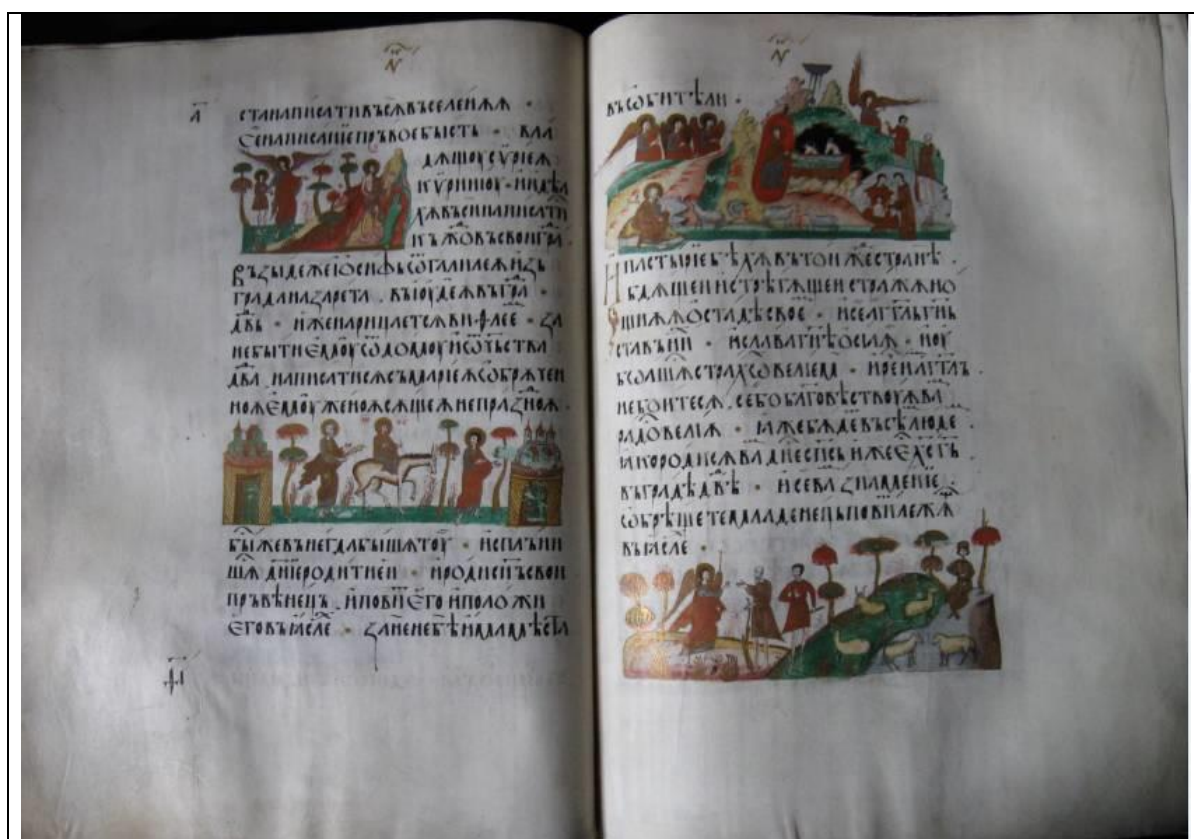 а҃
станаписативъсѫвъселенѫѫ ·
Сенаписанїепръвоебысть · вла
дѫщоусѵрїеѫ
кѵринїоу · иидѣа
хѫвъсинаписати
къжⷣовъсвоигра ·
Възыдежеїѡсифьѿгалилаеѫизь
граданазарета · въїоудеѫвъгра ·
двь · иженарицаетсѧвиѳлее · за
небытиемоуѿдомоуиѿьства
два написатисѧсъмарїеѫѡбрѫчен
ноѫемоуженоѫсѫщеѫнепразноѫ ·
быжевънегдабышѧтоу · исплъни
шѧднїеродитией · иродиснъсвои
пръвѣнець · иповиегоиположи
еговъꙗсле · занененебѣимамѣста
въѡбитѣли ·
Ипастырїебѣхѫвътоижестранѣ ·
бдѧщеиистрѣгѫщеистражѫно
щнѫѫостадѣсвое · исеаггльгнь
ставънй · иславагнѣосїаѫ · иоу
боашѧсѧстрахѡвелїемь · иреимагглъ
небоитесѧ · себоблаговѣствоуѫва
радовелїѫ · ꙗжебѫдевъсѣлюде ·
ꙗкородисѧвадиеспсьижеесхсгь
въградѣдвѣ · исевазнаменїе ·
ѡбрѧщетемладенецьповитлежѧ
въꙗсле ·